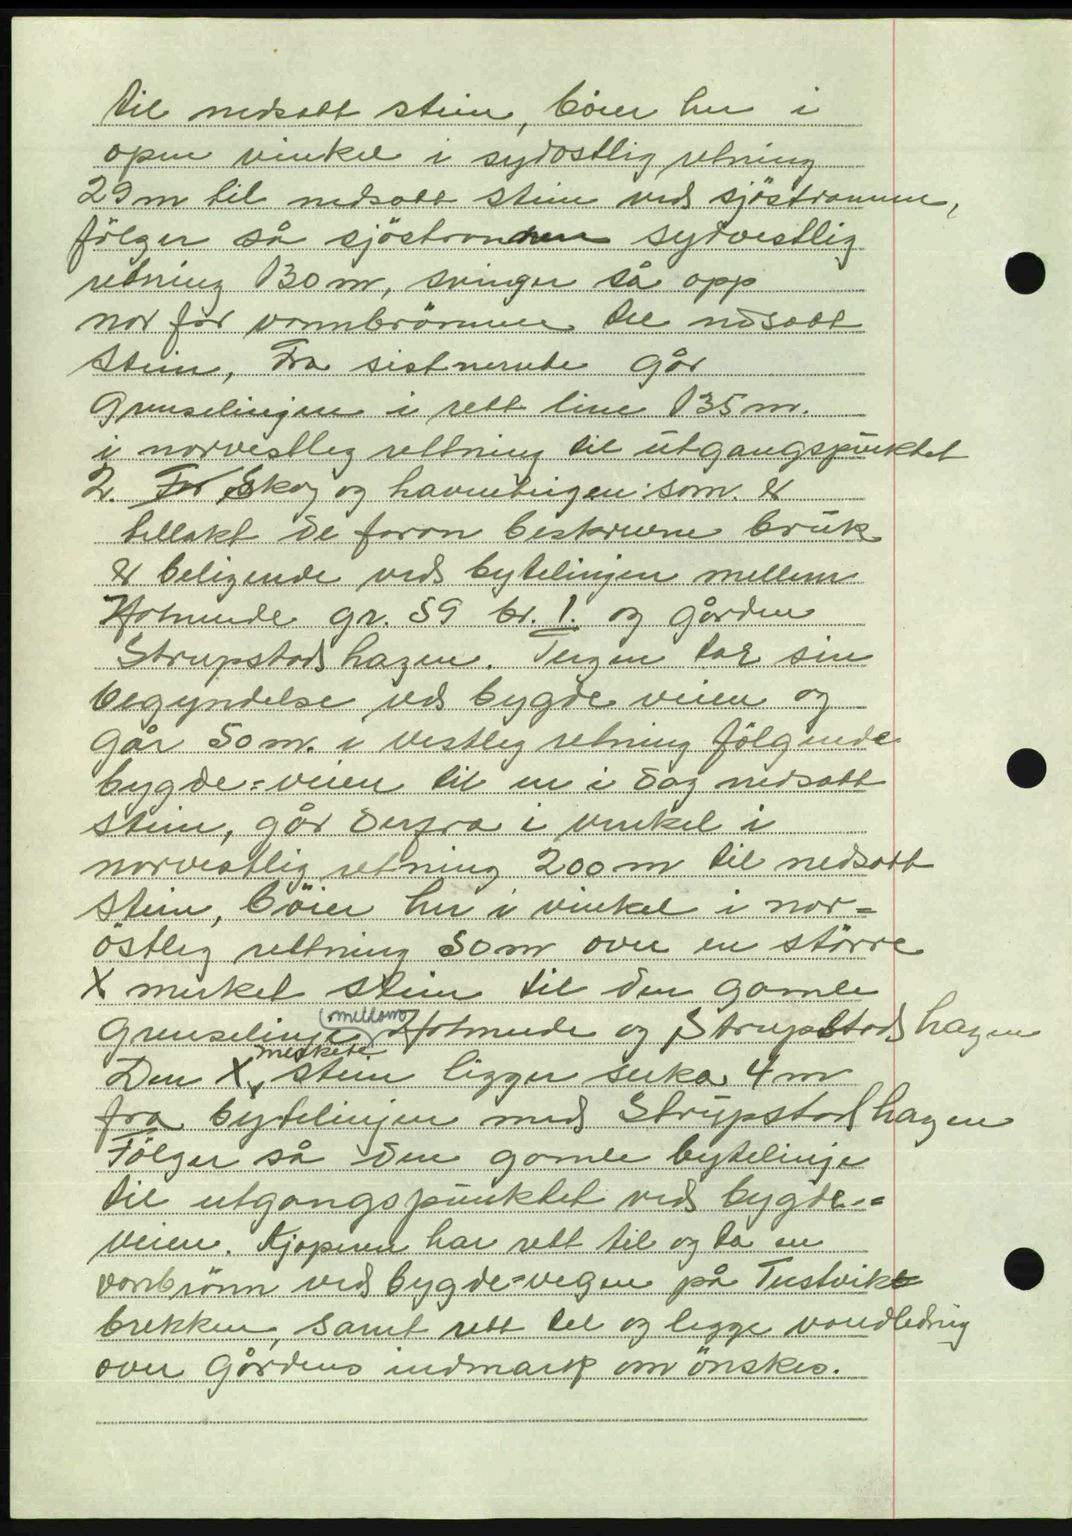 til nedsatt stein, böier her i
open vinkel i sydostlig retning
29 m til nedsatt stein ved sjöstrannen,
fölger så sjöstrannen sydvestlig
retning 130 m, svinger så opp
nor for vannbrönnen til nedsatt
stein, Fra sistnevnte går
grenselinjen i rett line 135 m.
i norvestleg rettning til utgangspunktet
2. For Skog og havneteigen som er
tillakt de foran beskrevne bruk
er beligende ved bytelinjen mellem
Hotnnede gr. 59 br. 1. og gården
Strupstadhagen. Teigen tar sin
begyndelse ved bygdeveien og
går 50 m. i vestleg retning fölgende
bygde=veien til en i dag nedsatt
stein, går derfra i vinkel i
norvestlig retning 200 m til nedsatt
stein, böier her i vinkel i nor=
östleg rettning 50 m over en större
X merket stein til den gamle
grenselinje mellom og Strupstadhagen
Den X merkete stein ligger serka 4 m
fra bytelinjen med Strupstadhagen
Fölger så den gamle bytelinje
til utgangspunktet ved bygde=
veien. Kjöperen har rett til og ta en
vanbrönn ved bygde=vegen på Tustvik
brekken, samt rett til og legge vandledning
over gårdens indmark om önskes.